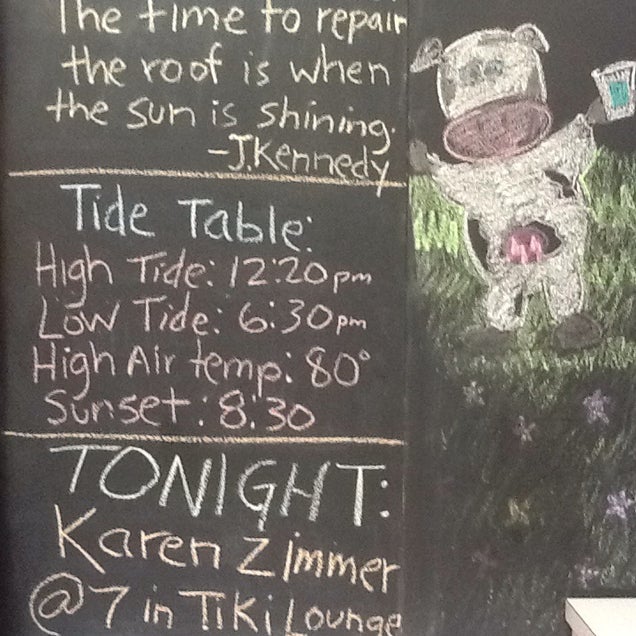 The time to repair
the roof is when
the sun is shining.
-J.Kennedy
Tide Table:
High Tide: 12:20pm
Low Tide: 6:30pm
High Air temp: 80°
Sunset: 8:30
TONIGHT:
Karen Zimmer
@7 in Tiki Lounge